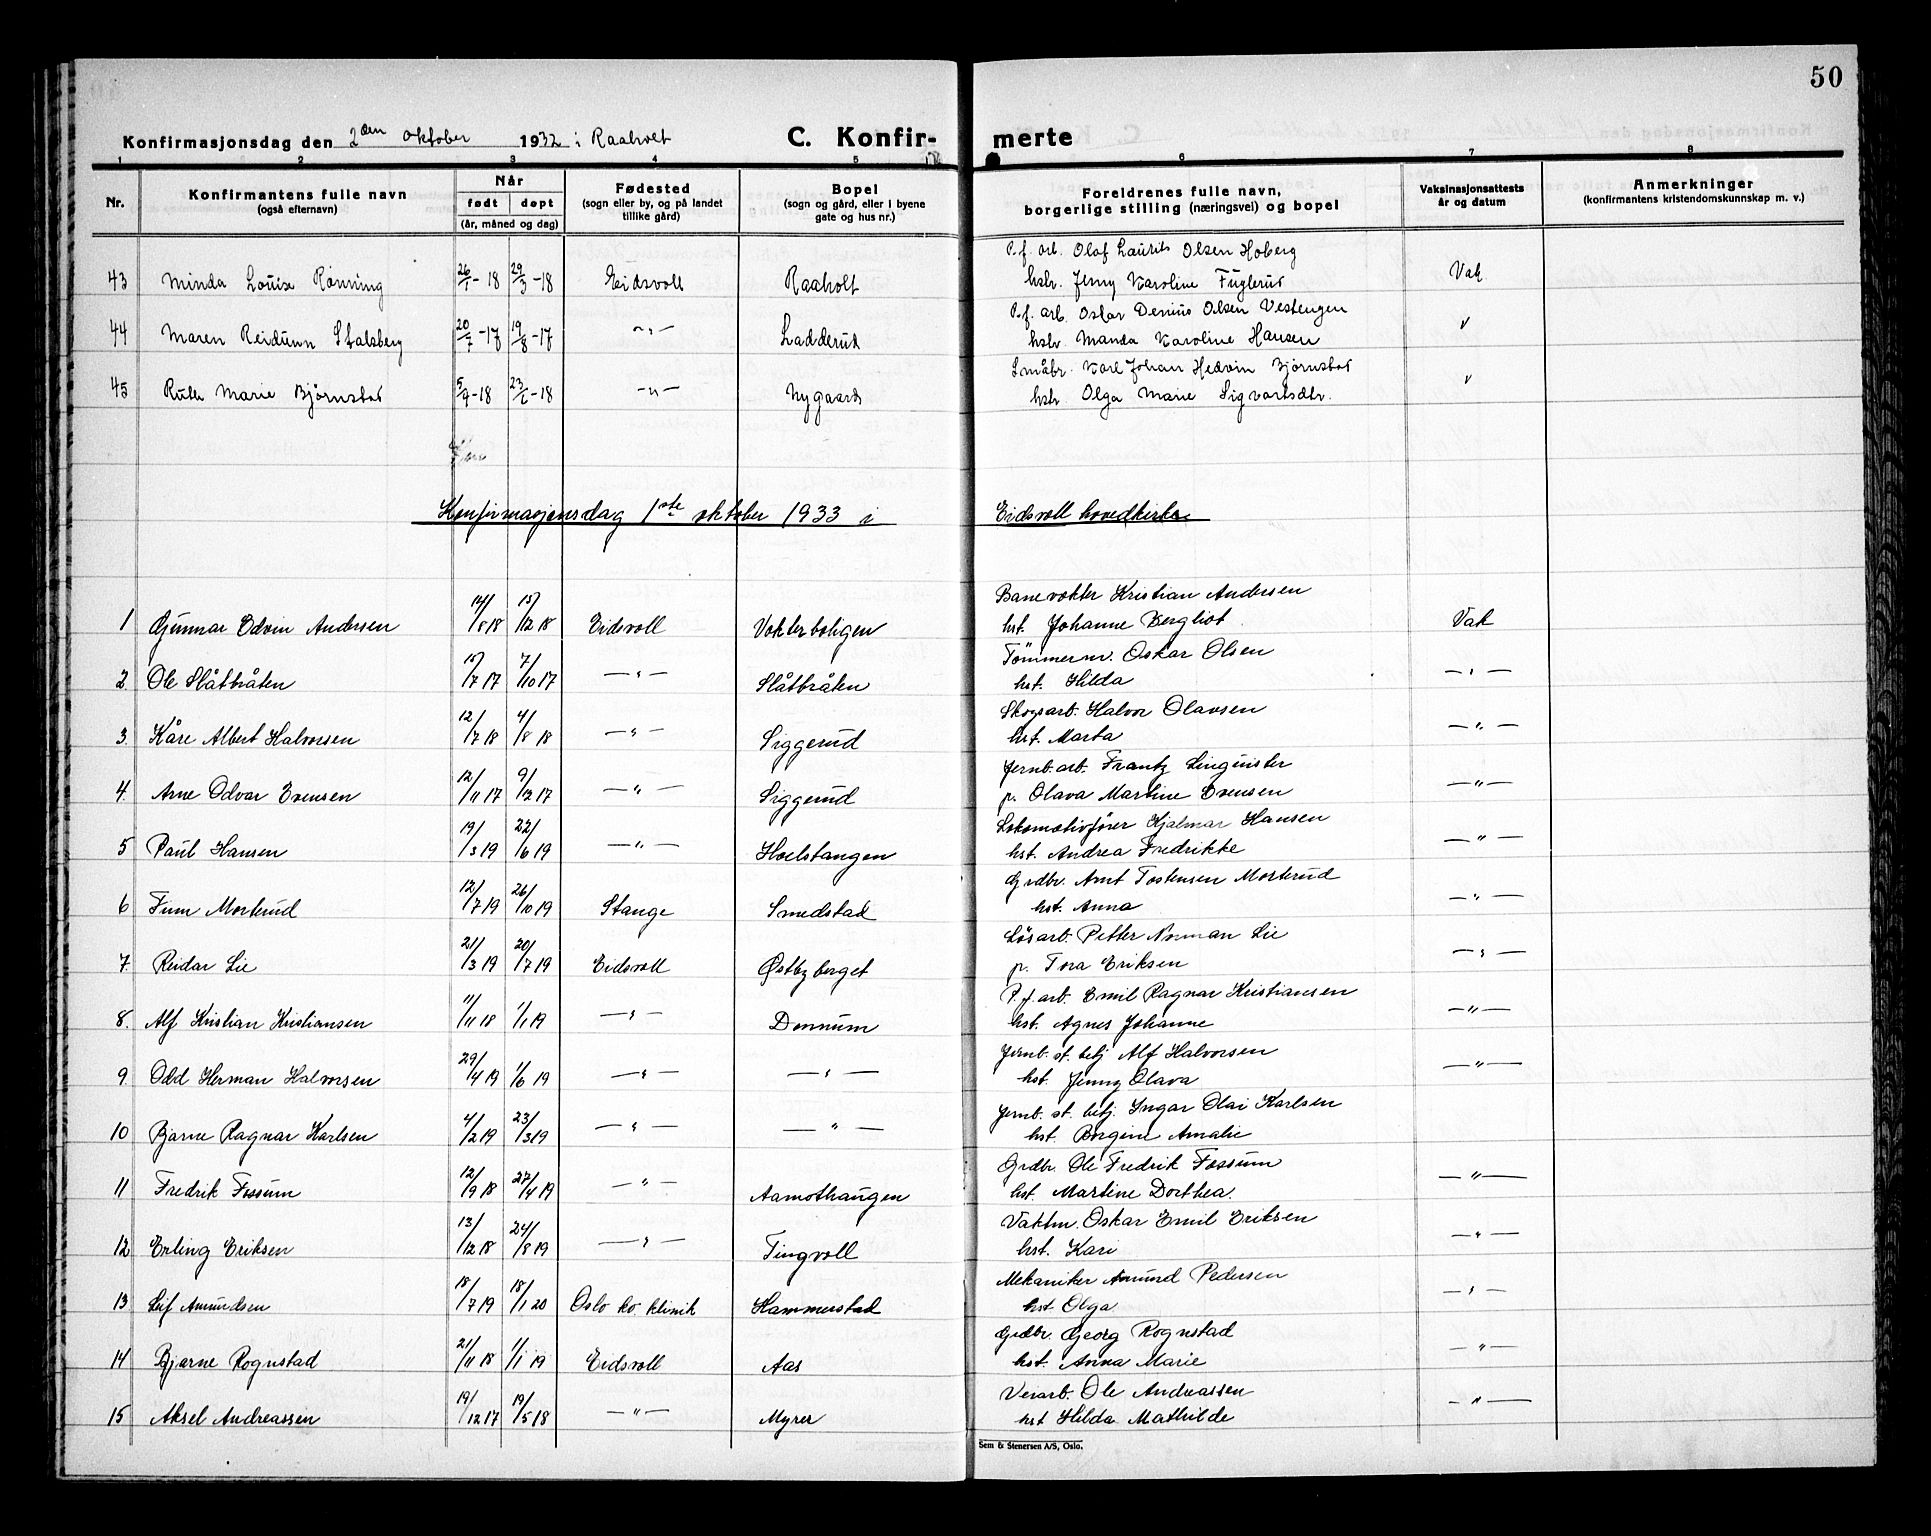 50
Konfirmasjonsdag den 2den oktober 1932 i Raaholt C. Konfir- merte
1 2 3 4 5 6 7 8
Nr. Konfirmantens fulle navn (også efternavn) Når født døpt (år, måned og dag) Fødested (sogn eller by, og på landet tillike gård) Bopel (sogn og gård, eller i byene gate og hus nr.) Foreldrenes fulle navn, borgerlige stilling (næringsvei) og bopel Vaksinasjonsattests år og datum Anmerkninger (konfirmantens kristendomskunnskap m. v.)
P.f. arb. Olaf Laurits Olsen Hoberg
43 Minda Louise Rønning 26/1-18 29/3-18 Eidsvoll Raaholt hstr. Jenny Karoline Fuglerud Vak
P.f. arb. Oskar Denius Olsen Vestengen
44 Maren Reidunn Stalsberg 20/7-17 19/8-17 -"- Ladderud hstr. Manda Karoline Hansen "
Småbr. Karl Johan Hedvin Bjørnstad
45 Ruth Marie Bjørnstad 5/4-18 23/6-18 -"- Nygaard hstr. Olga Marie Sigvartsdtr. "
Konfirmasjonsdag 1ste oktober 1933 i Eidsvoll hovedkirke
Banevokter Kristian Andersen
1 Gunnar Edvin Andersen 14/8 18 15/12 18 Eidsvoll Vokterboligen hst. Johanne Bergliot Vak
Tømmerm. Oskar Olsen
2 Ole Slåtbråten 15/7 17 7/10 17 -"- Slåtbråten hst. Hilda -"-
Skogsarb. Halvor Olavsen
3. Kåre Albert Halvorsen 12/7 18 4/8 18 -"- Siggerud hst. Marta -"-
Jernb. arb. Frantz Linquister
4. Arne Odvar Evensen 12/11 17 9/12 17 -"- Siggerud p. Olava Martine Evensen -"-
Lokomotivfører Hjalmar Hansen
5 Paul Hansen 19/3 19 22/6 19 -"- Hoelstangen hst. Andrea Fredrikke -"-
Grdbr. Arnt Tostensen Morterud
6 Finn Morterud 12/7 19 26/10 19 Stange Smedstad hst. Anna -"-
Løsarb. Petter Norman Lie
7. Reidar Lie 21/3 19 20/7 19 Eidsvoll Østbyberget p. Tora Eriksen -"-
P.f. arb. Emil Ragnar Kristiansen
8. Alf Kristian Kristiansen 11/11 18 1/1 19 -"- Dønnum hst. Agnes Johanne -"-
Jernb. st. betj Alf Halvorsen
9. Odd Herman Halvorsen 29/4 19 1/6 19 -"- -"- hst. Jenny Olava -"-
Jernb. st. betj. Ingar Olai Karlsen
10 Bjarne Ragnar Karlsen 4/2 19 23/3 19 -"- -"- hst. Borgine Amalie
Grdbr. Ole Fredrik Fossum
11 Fredrik Fossum 12/9 18 27/4 19 -"- Aamothaugen hst. Martine Dorthea. -"-
Vaktm. Oskar Emil Eriksen
12 Erling Eriksen 13/12 18 24/8 19 -"- Tingvoll hst. Kari -"-
Mekaniker Amund Pedersen
13 Leif Amundsen 18/7 19 18/1 20 Oslo kv. klinik Hammerstad hst. Olga -"-
Grdbr. Georg Rognstad
14 Bjarne Rognstad 21/11 18 1/1 19 Eidsvoll Aas hst. Anna Marie -"-
Veiarb. Ole Andreassen
15 Aksel Andreassen 19/12 17 19/5 18 -"- Myrer hst Hilda Mathilde -"-
Sem & Stenersen A/S, Oslo.